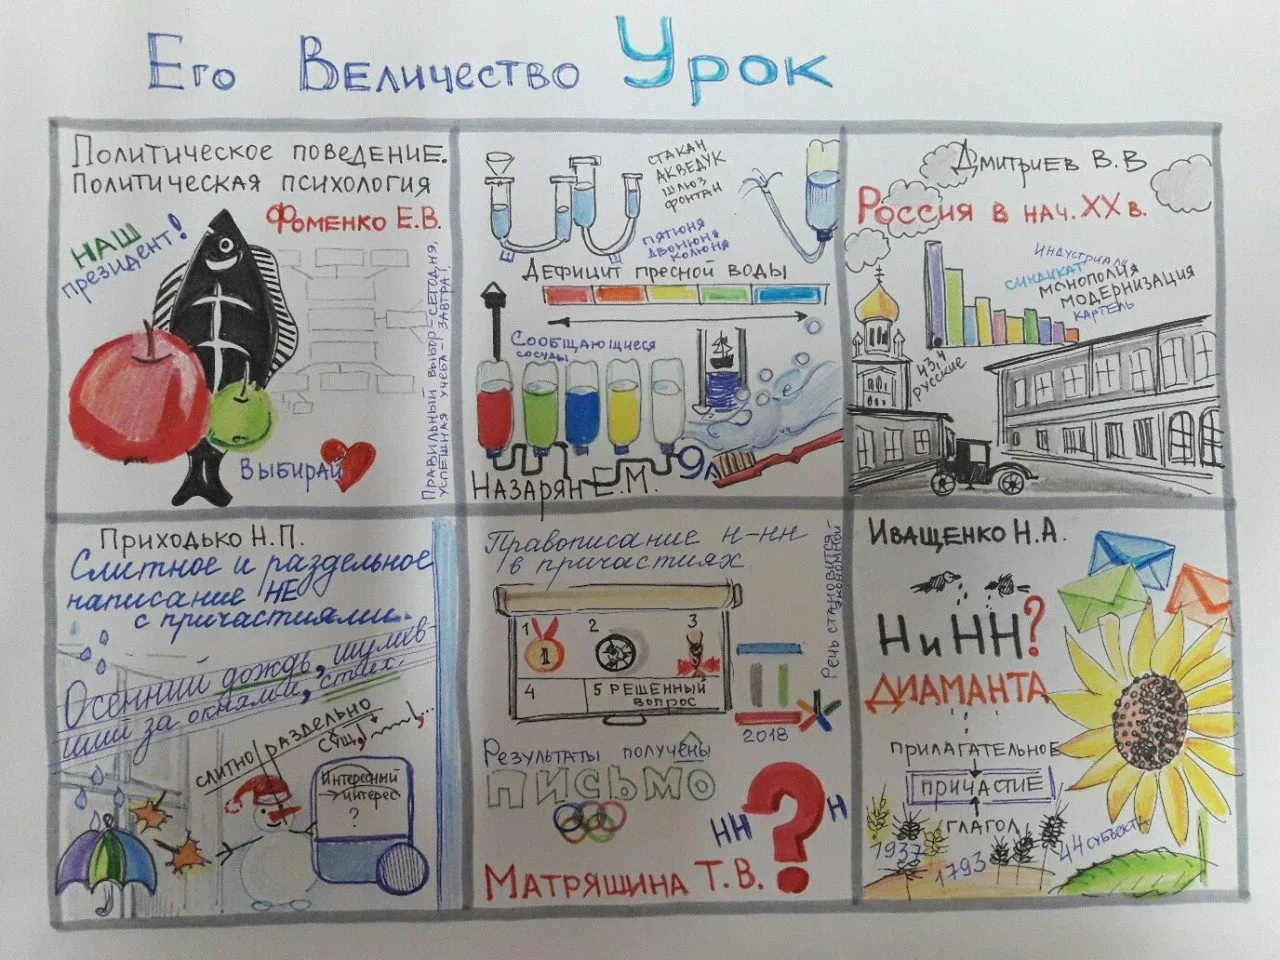 Его Величество Урок
Политическое поведение.
Политическая психология
Фоменко Е.В.
НАШ
президент!
Выбирай
Правильный выбор – сегодня,
успешная учеба – завтра!
СТАКАН
АКВЕДУК
ШЛЮЗ
ФОНТАН
ПЯТЮНЯ
ДВОЙЮНЯ
КОЛЮНЯ
Дефицит пресной воды
Сообщающиеся
сосуды
9л
Назарян Е.М.
Дмитриев В.В
Россия в нач. XX в.
СИНДИКАТ
МОНОПОЛИЯ
МОДЕРНИЗАЦИЯ
КАРТЕЛЬ
43,4
РУССКИЕ
Приходько Н.П.
Слитное и раздельное
написание НЕ
с причастиями.
Осенний дождь, шумев-
ший за окнами, стих.
слитно/раздельно
сущ.
Интересный
→ интерес
?
Правописание н-нн
в причастиях.
1 2 3
1
4 5 РЕШЕННЫЙ
ВОПРОС
2018
Речь становится
экономной
Результаты получены
ПИСЬМО
НН Н
?
Матрящина Т.В.
Иващенко Н.А.
Н и НН?
ДИАМАНТА
ПРИЛАГАТЕЛЬНОЕ
ПРИЧАСТИЕ
ГЛАГОЛ
1937
1793
44 субъекта